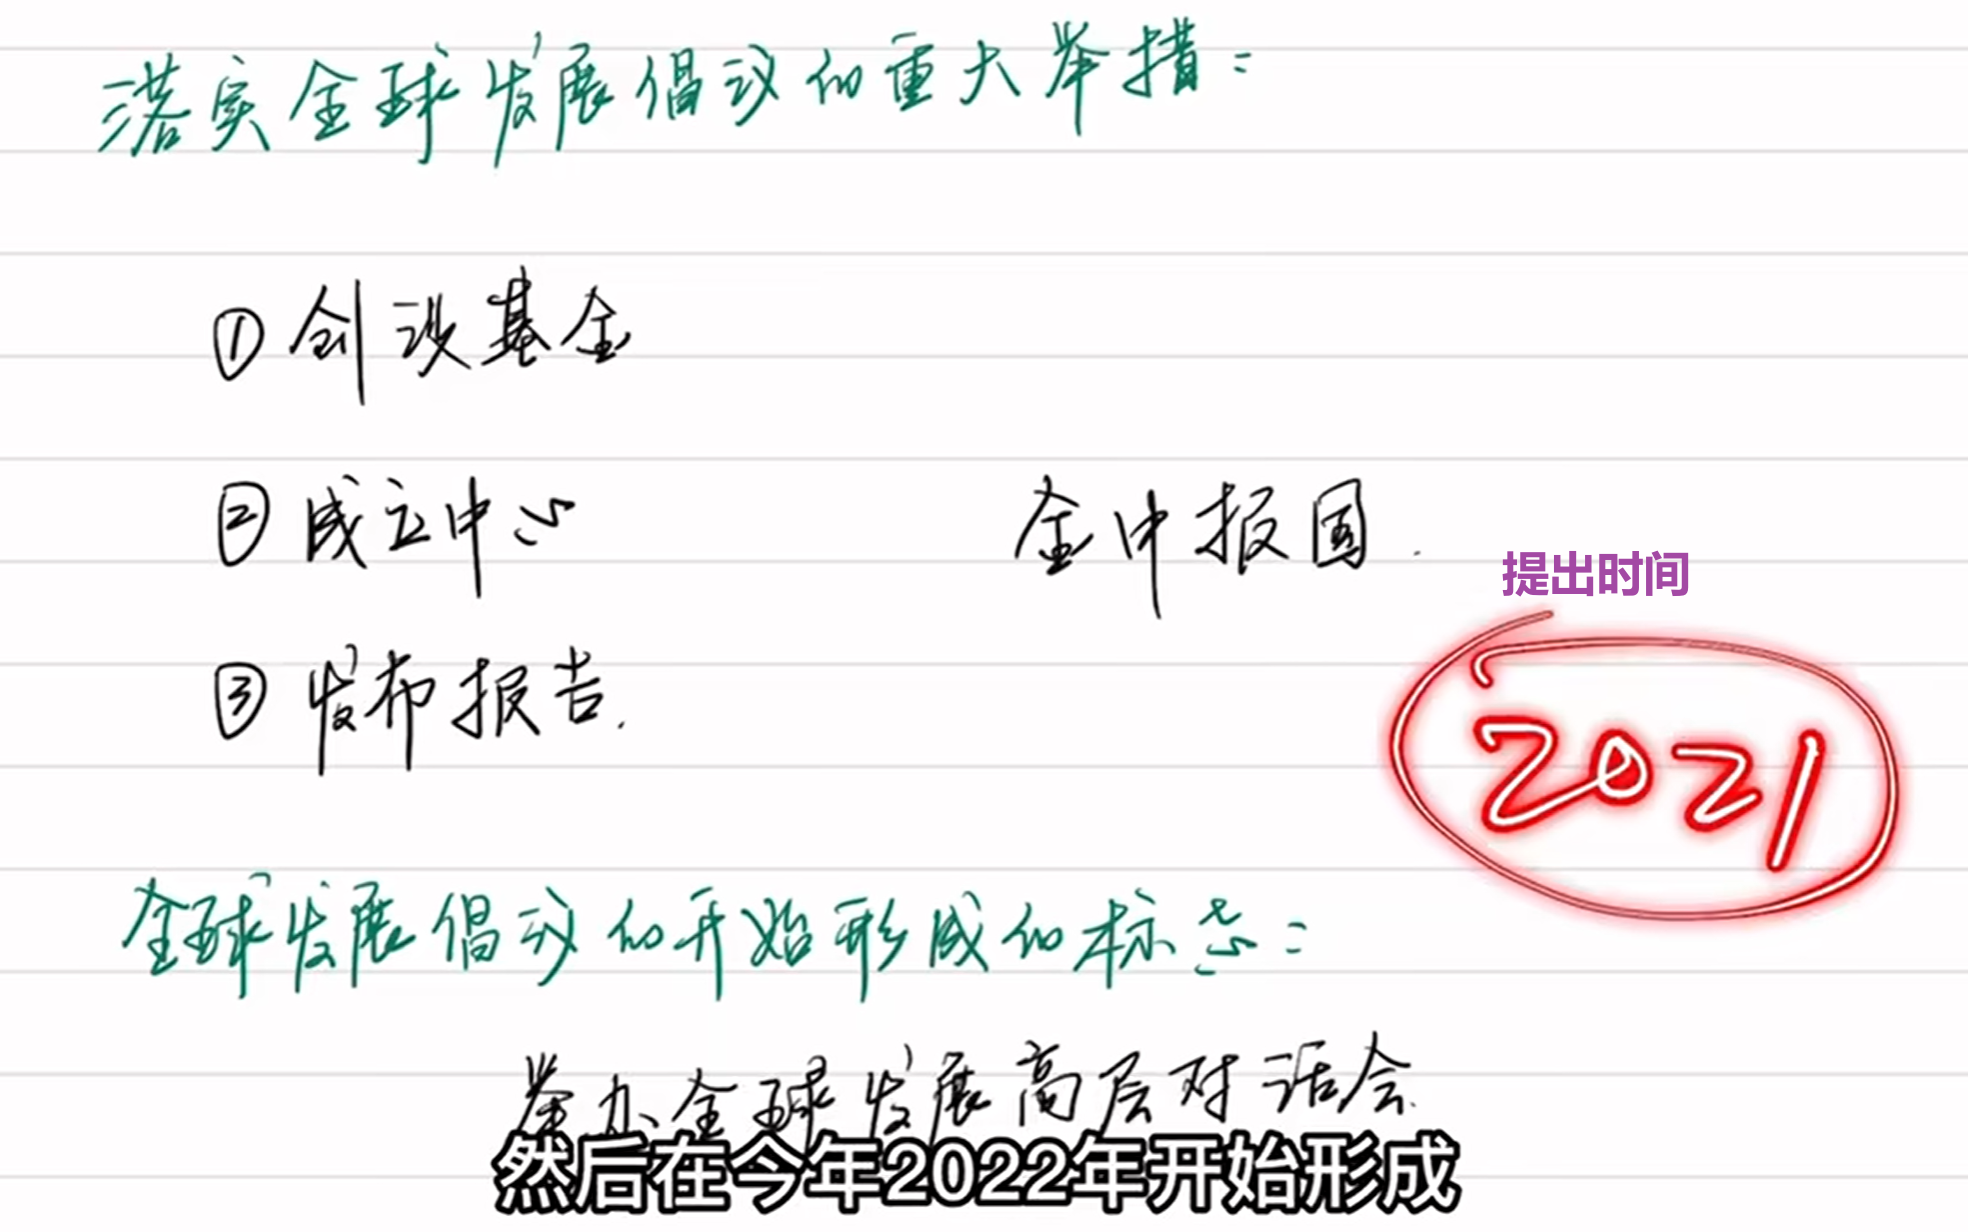 落实全球发展倡议的重大举措：
①创设基金
②成立中心
金中报国.
提出时间
③发布报告.
2021
全球发展倡议的开始形成的标志：
举办全球发展高层对话会.
然后在今年2022年开始形成